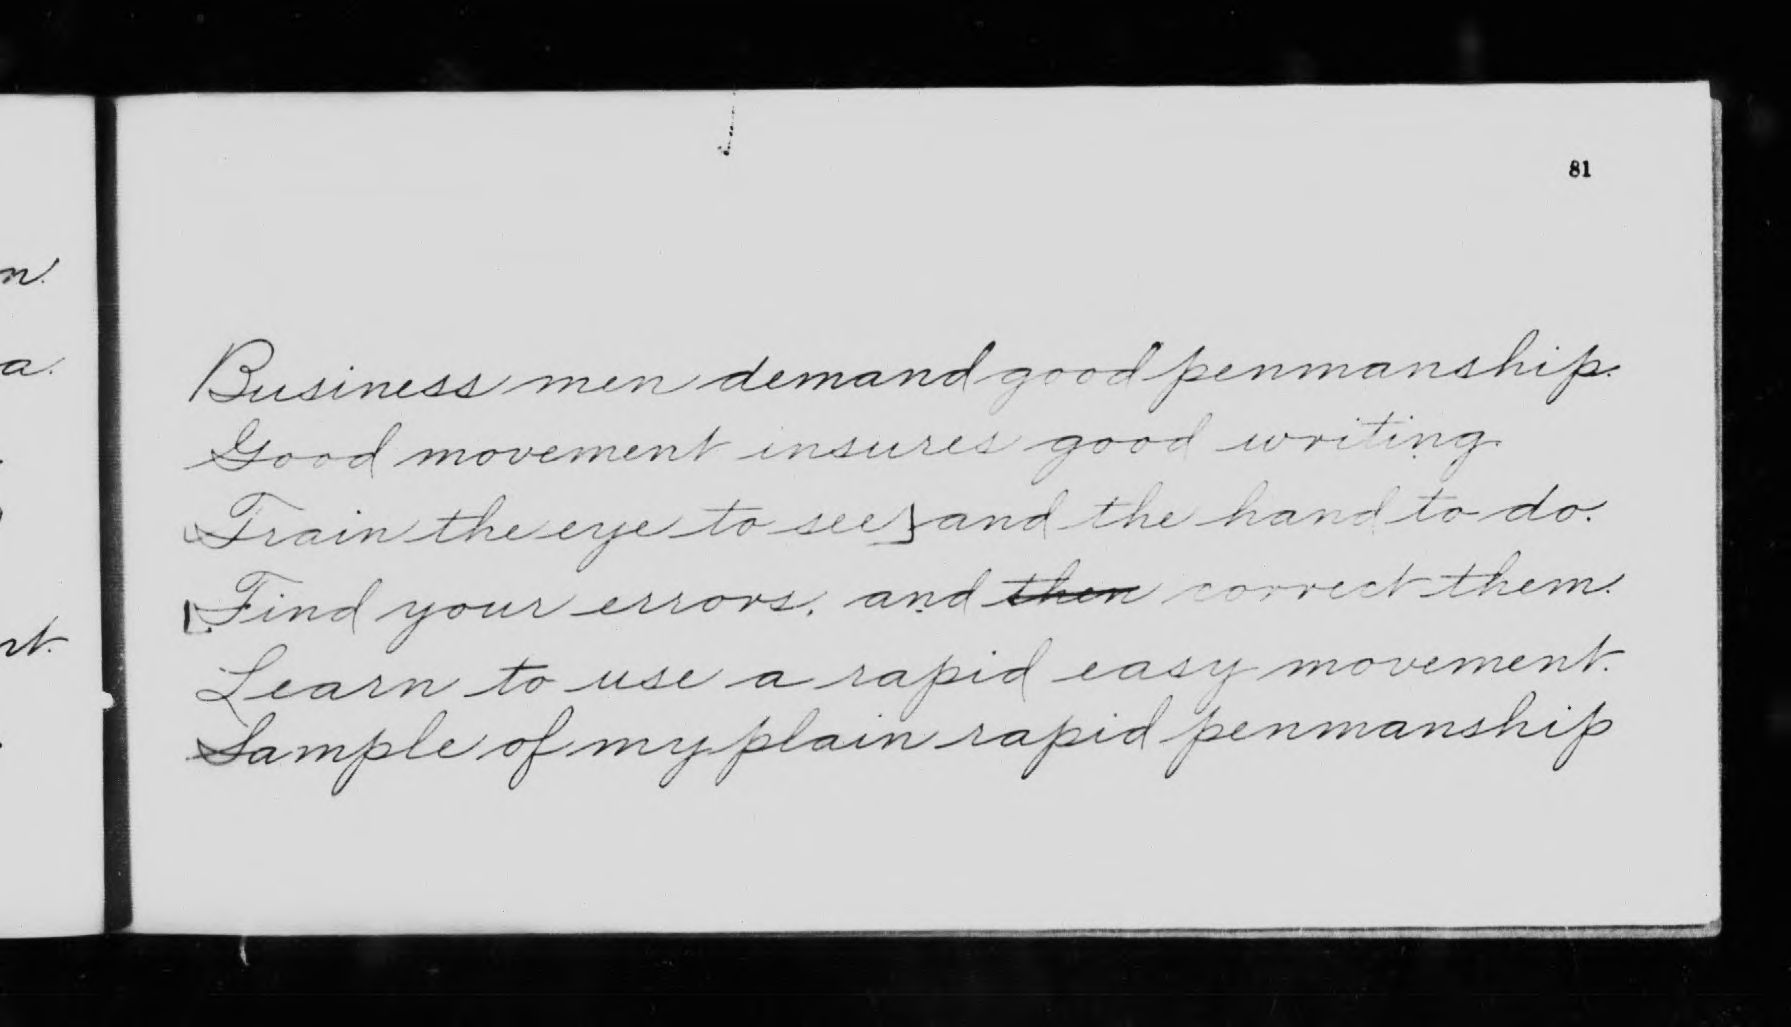 81
n.
a.
nt.
Business men demand good penmanship.
Good movement insures good writing.
Train the eye to see] and the hand to do.
[Find your errors, and ~~then~~ correct them.
Learn to use a rapid easy movement.
Sample of my plain rapid penmanship